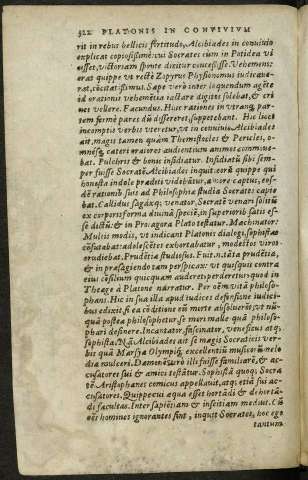 322 PLATONIS IN CONVIVIVM
rit in rebus bellicis fortitudo, Alcibiades in conuiuio
explicat copiosissimè: vui Socrates cùm in Potidea vi
esset, victoriam sponte dicitur concessisse. Vehemens:
erat quippe vt rectè Zopyrus Physionomus iudicaue-
rat, cōcitatissimus. Sæpe verò inter loquendum agēte
id orationis vehemētia iactare digitos solebat, & cri
nes vellere. Facundus. Huic rationes in vtranq; par-
tem fermè pares dū dissereret, suppetebant. Hic licet
incomptis verbis vteretur, vt in conuiuio Alcibiades
ait, magis tamen quàm Themistocles & Pericles, o-
mnésq; cæteri oratores audientium animos commoue-
bat. Pulchris & bonis insidiatur. Insidiatū sibi sem-
per fuisse Socratē Alcibiades inquit. eorū quippe qui
honesta indole præditi videbātur, amore captus, eos-
dē rationib suis ad Philosophiæ studia Socrates capie
bat. Callidus sagáxq; venator. Socratē venari solitū
ex corporis forma diuinā speciē, in superiorib satis es-
se dictū: & in Protagora Plato testatur. Machinator:
Multis modis, vt indicant Platonis dialogi, sophistas
cōfutabat: adolescētes exhortabatur, modestos viros
erudiebat. Prudētiæ studiosus. Fuit n. tāta prudētia,
& in præsagiendo tam perspicax: vt quisquis contra
eius cōsilium quicquam auderet, perderetur: quod in
Theage à Platone narratur. Per oēm vitā philoso-
phans. Hic in sua illa apud iudices defensione iudici-
bus edixit, si ea cōditione eū morte absoluerēt, vt nū
quā postea philosophetur, se mori malle quā philoso-
phari desinere. Incantator, fascinator, veneficus atq;
sophista. Nā Alcibiades ait se magis Socraticis ver-
bis quā Marsyæ & Olympi, excellentiū musicorū melo
dia mulceri. Dæmonē verò illi fuisse familiarē, & ac-
cusatores sui & amici testātur. Sophistā quoq; Socra
tē Aristophanes comicus appellauit, atq; etiā sui ac-
cusatores. Quippe cui aqua esset hortādi & dehortā-
di facultas. Inter sapiētiam & inscitiam mediul. Cū
oēs homines ignorantes sint, inquit Socrates, hoc ego
tantum